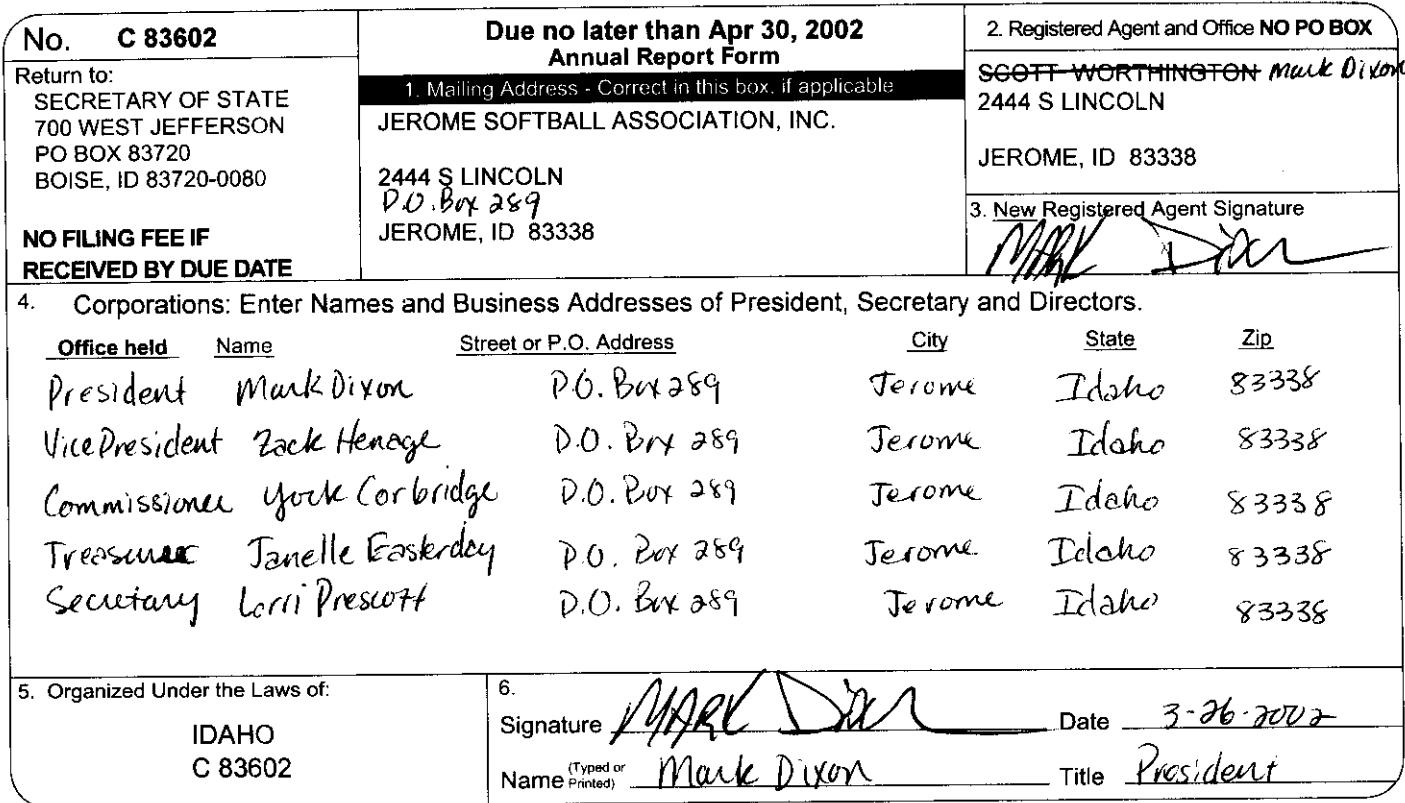 No. C 83602
Return to:
SECRETARY OF STATE
700 WEST JEFFERSON
PO BOX 83720
BOISE, ID 83720-0080
NO FILING FEE IF
RECEIVED BY DUE DATE
Due no later than Apr 30, 2002
Annual Report Form
1. Mailing Address - Correct in this box, if applicable
JEROME SOFTBALL ASSOCIATION, INC.
2444 S LINCOLN
P.O. Box 289
JEROME, ID 83338
2. Registered Agent and Office NO PO BOX
SCOTT WORTHINGTON Mark Dixon
2444 S LINCOLN
JEROME, ID 83338
3. New Registered Agent Signature
MARK Dixon
4. Corporations: Enter Names and Business Addresses of President, Secretary and Directors.
Office held Name Street or P.O. Address City State Zip
President Mark Dixon P.O. Box 289 Jerome Idaho 83338
Vice President Zack Henage P.O. Box 289 Jerome Idaho 83338
Commissioner York Corbridge P.O. Box 289 Jerome Idaho 83338
Treasurer Janelle Easterday P.O. Box 289 Jerome Idaho 83338
Secretary Lorri Prescott P.O. Box 289 Jerome Idaho 83338
5. Organized Under the Laws of:
IDAHO
C 83602
6.
Signature MARK Dixon Date 3-26-2002
Name (Typed or Printed) Mark Dixon Title President